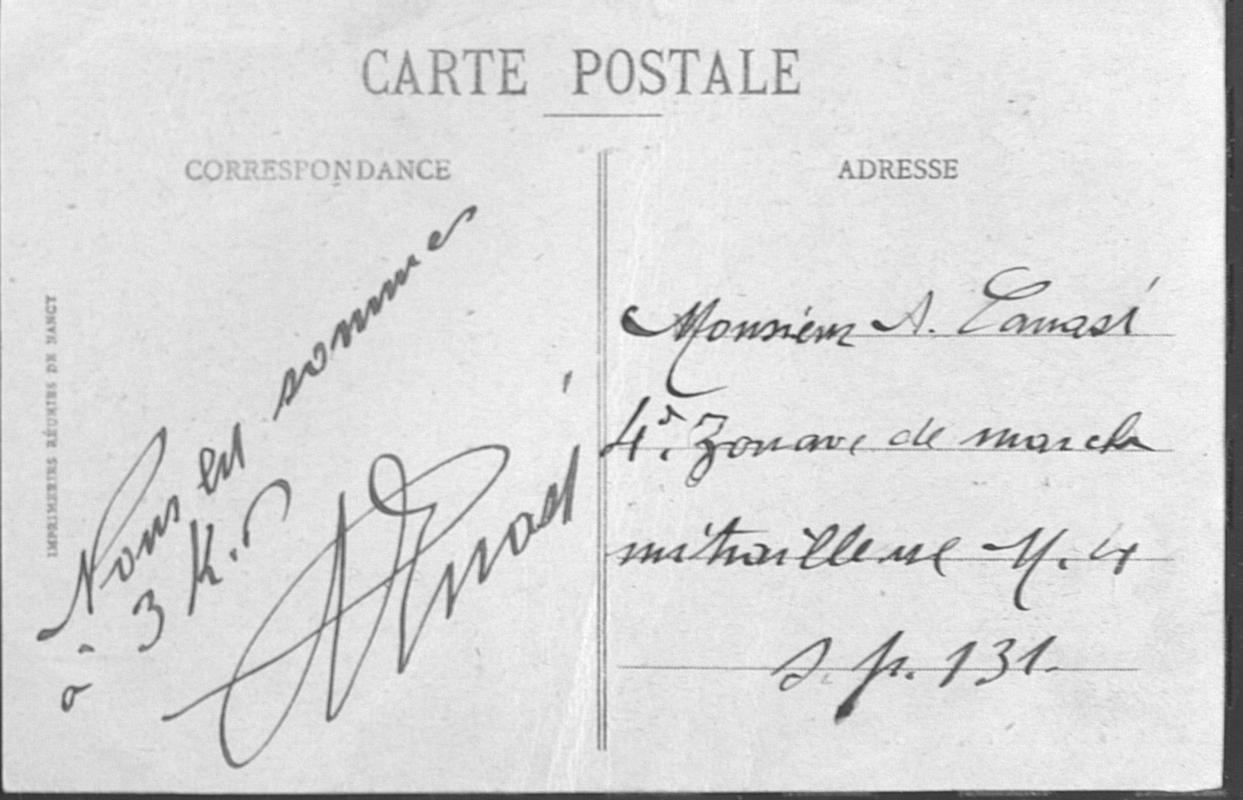 CARTE POSTALE
CORRESPONDANCE
ADRESSE
IMPRIMERIES RÉUNIES DE NANCY
Nous en sommes
à 3 K.
Monsieur A.
4e Zouave de marche
mitrailleuse N. 4
S. p. 131.